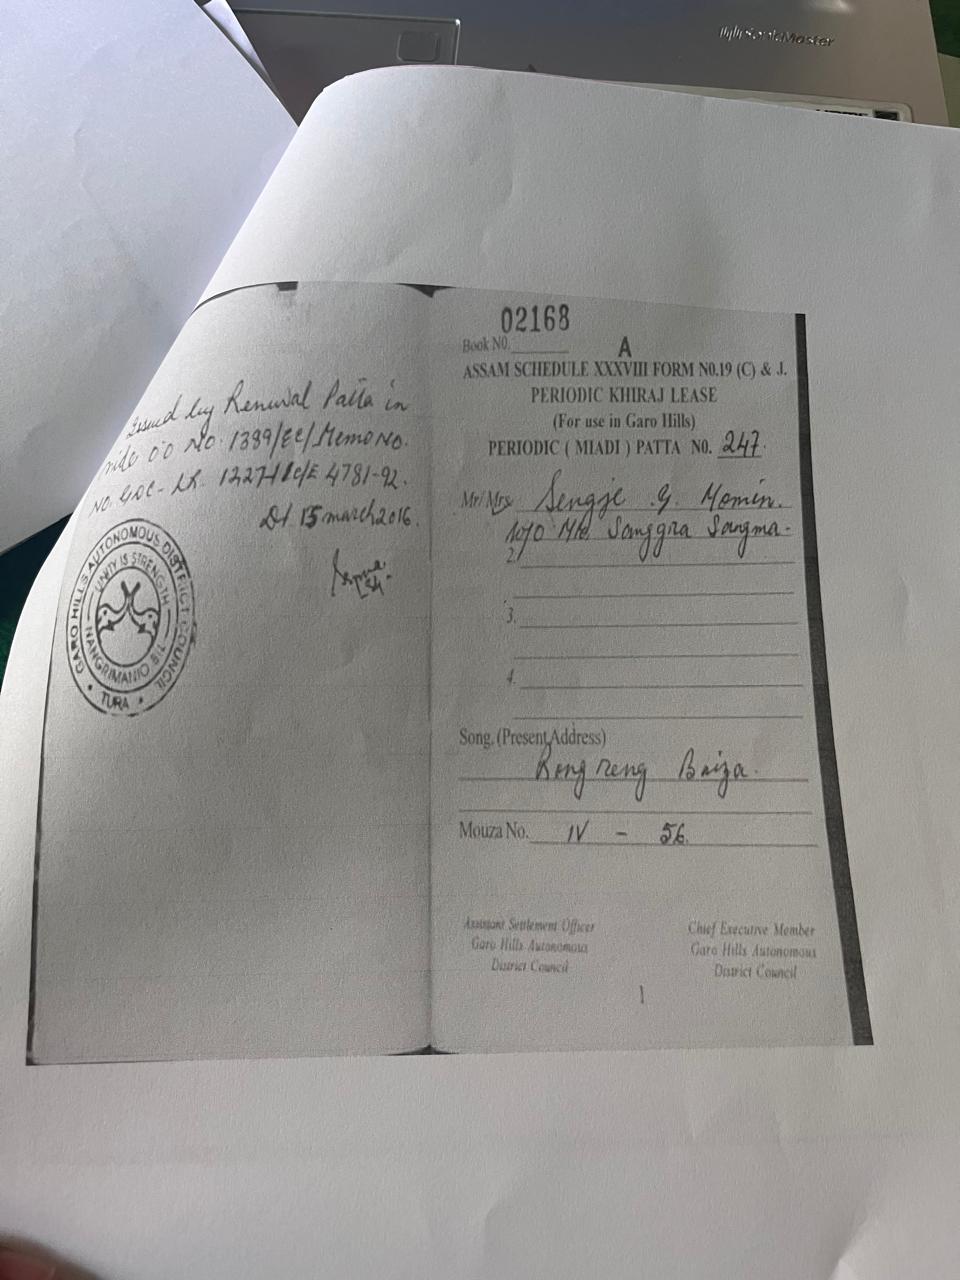 SonicMaster
Issued by Renewal Patta in
vide O/O No. 1389/EC/Memo No.
NO. GDC- LR. 4781-92.
Dt 15 march 2016.
GARO HILLS AUTONOMOUS DISTRICT COUNCIL
UNITY IS STRENGTH
TURA
02168
Book NO.
A
ASSAM SCHEDULE XXXVIII FORM N0.19 (C) & J.
PERIODIC KHIRAJ LEASE
(For use in Garo Hills)
PERIODIC ( MIADI ) PATTA N0. 247.
Mr/Mrs. Sengje G. Momin.
W/O Mr. Sanggra Sangma-
2.
3.
4.
Song. (Present Address)
Rongreng Baiza.
Mouza No. IV - 56.
Assistant Settlement Officer
Garo Hills Autonomous
District Council
Chief Executive Member
Garo Hills Autonomous
District Council
1